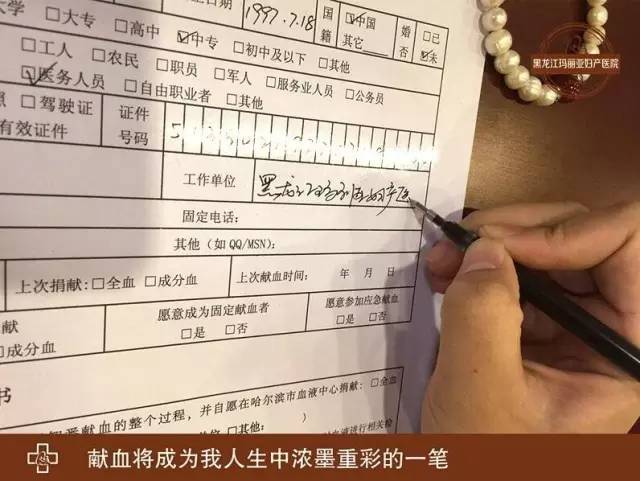 大学 □大专 □高中 ☑中专 □初中及以下 □其他
日期 1997.7.18 国籍 ☑中国 其它 婚否 □已 ☑未
□工人 □农民 □职员 □军人 □服务业人员 □公务员
☑医务人员 □自由职业者 □其他
照 □驾驶证 证件号码
有效证件
工作单位 黑龙江玛丽亚妇产医
固定电话:
其他（如 QQ/MSN）:
上次捐献:□全血 □成分血 上次献血时间: 年 月 日
献 愿意成为固定献血者 愿意参加应急献血
□成分血 □是 □否 □是 □否
书
献血的整个过程，并自愿在哈尔滨市血液中心捐献:□全血
□其他:
血液进行相关检
黑龙江玛丽亚妇产医院
献血将成为我人生中浓墨重彩的一笔